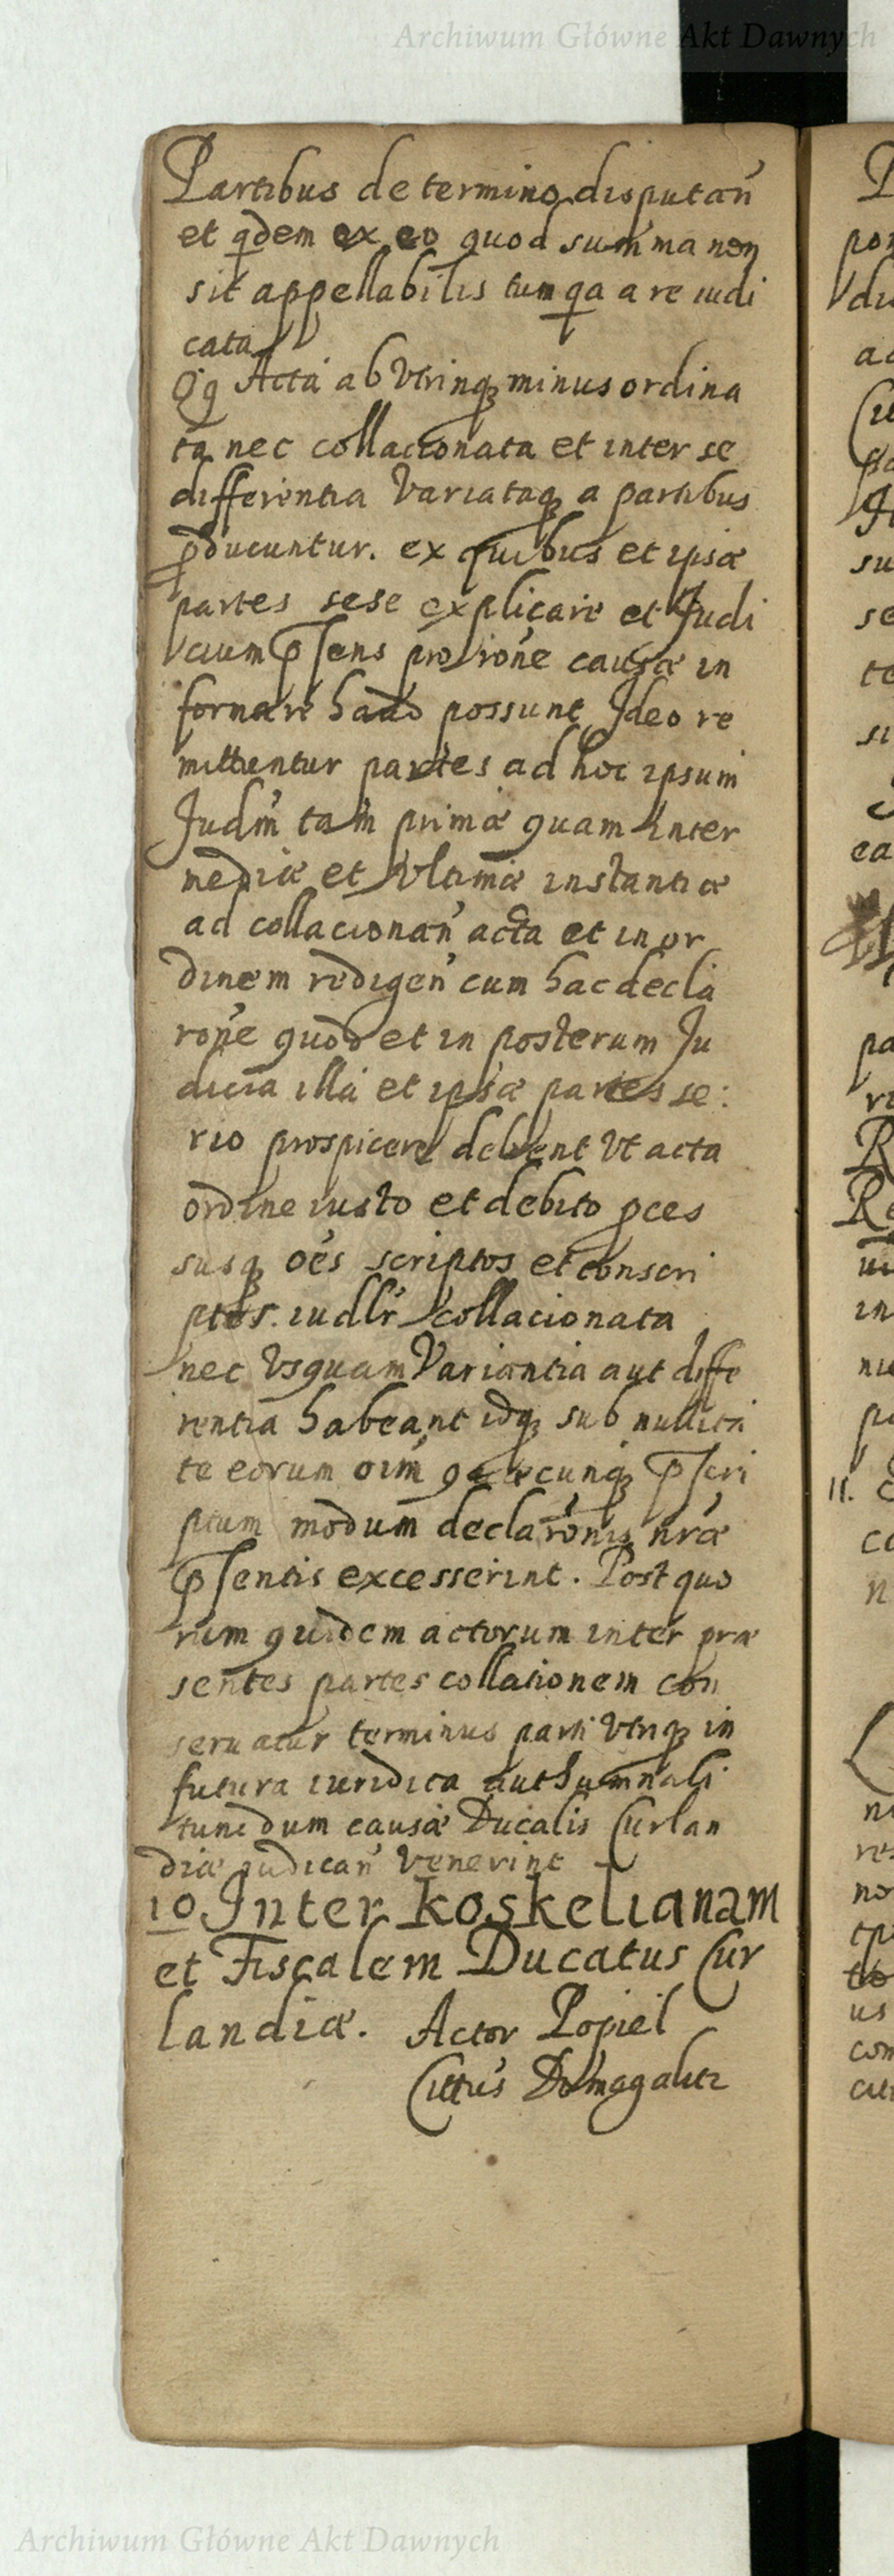 Archiwum Główne Akt Dawnych
Partibus de termino disputan̄
et qdem ex eo quod summa non
sit appellabilis tum qa a re iudi
cata
Acta ab Vtrinq minus ordina
ta nec collacionata et inter se
differentia Variataq a partibus
pducuntur. ex quibus et ipsæ
partes sese explicare et Judi
cium psens pro rōne causæ in
formare haud possunt Ideo re
mittuntur partes ad hoc ipsum
Judm tam primæ quam inter
mediæ et Vltimæ instantiæ
ad collacionan̄ acta et in or
dinem redigen̄ cum hac decla
rōne quod et in posterum Ju
dicia illa et ipsæ partes se:
rio prospicere debent Vt acta
ordine iusto et debito pces
susq oēs scriptos et conscri
ptos. iudlr collacionata
nec Vsquam Variantia aut diffe
rentia habeant idq sub nullita
te eorum oīm quæcunq pscri
ptum modum declarōnis nr̄æ
psentis excesserint. Post quo
rum quidem actorum inter præ
sentes partes collationem con
seruatur terminus parti Vtriq in
futura iuridica authumnali
tunc dum causæ Ducalis Curlan
diæ iudican̄ venerint
10 Inter Koskelianam
et Fiscalem Ducatus Cur
landiæ. Actor Popiel
Cittus Domagalitz
Archiwum Główne Akt Dawnych